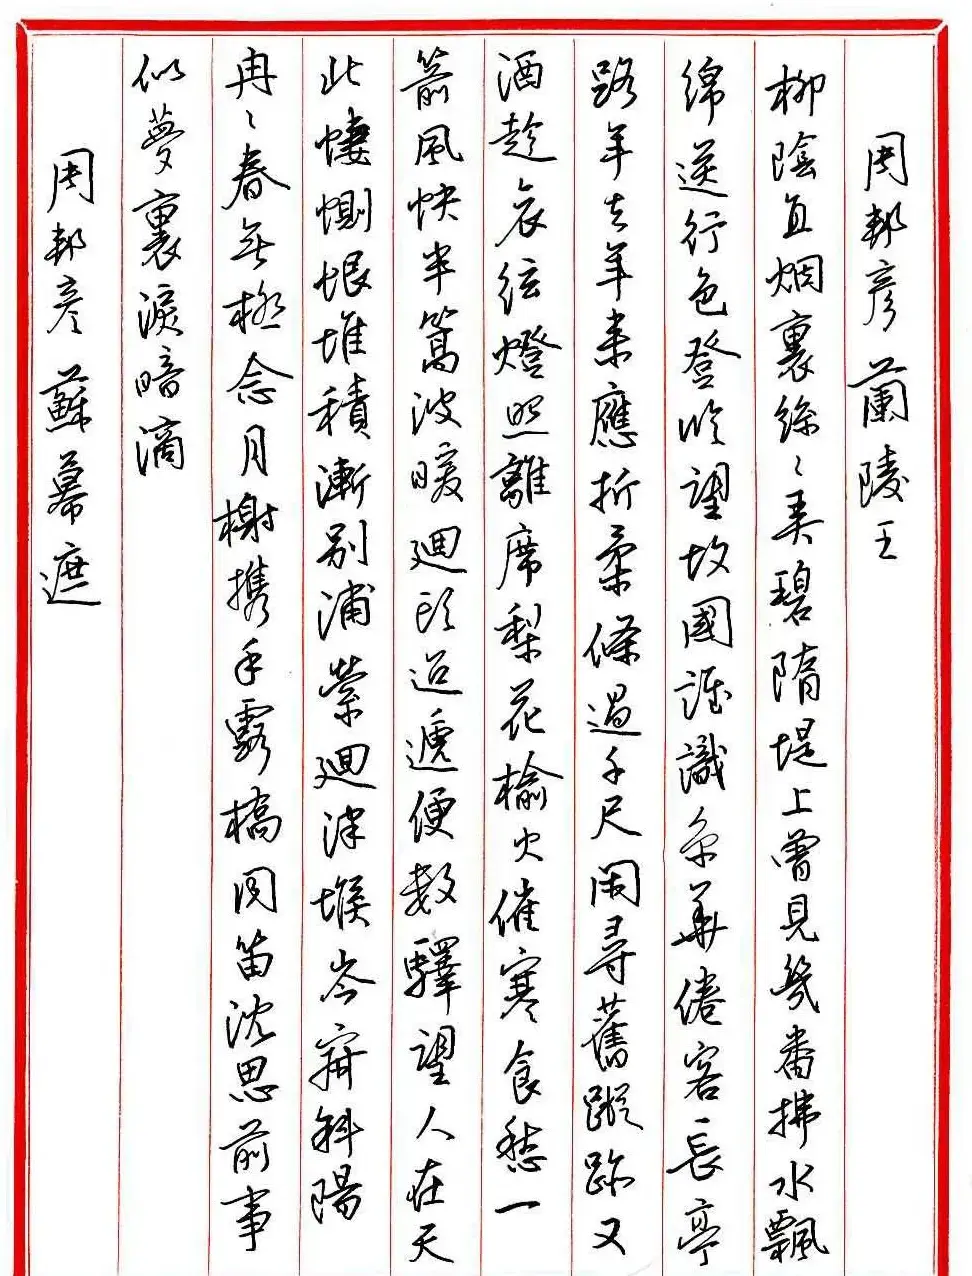 周邦彥 蘭陵王
柳陰直烟裏絲〻弄碧隋堤上曾見幾番拂水飄
綿送行色登臨望故國誰識京華倦客長亭
路年去年来應折柔條過千尺閑尋舊蹤跡又
酒趁哀弦燈照離席梨花榆火催寒食愁一
箭風快半篙波暖迴頭迢遞便數驛望人在天
北悽惻恨堆積漸别浦縈迴津堠岑寂斜陽
冉〻春無極念月榭携手露橋聞笛沈思前事
似夢裏淚暗滴
周邦彥 蘇幕遮